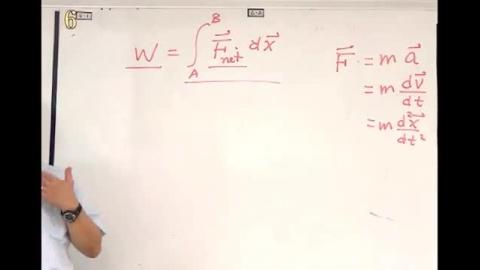 6
W = ∫_A^B F⃗_net · dx⃗
F⃗ = m a⃗
= m dv⃗/dt
= m d²x⃗/dt²